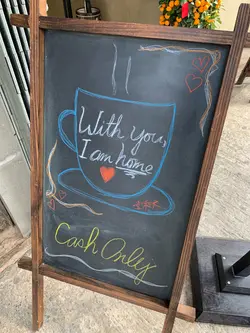 With you,
I am home
Cash Only